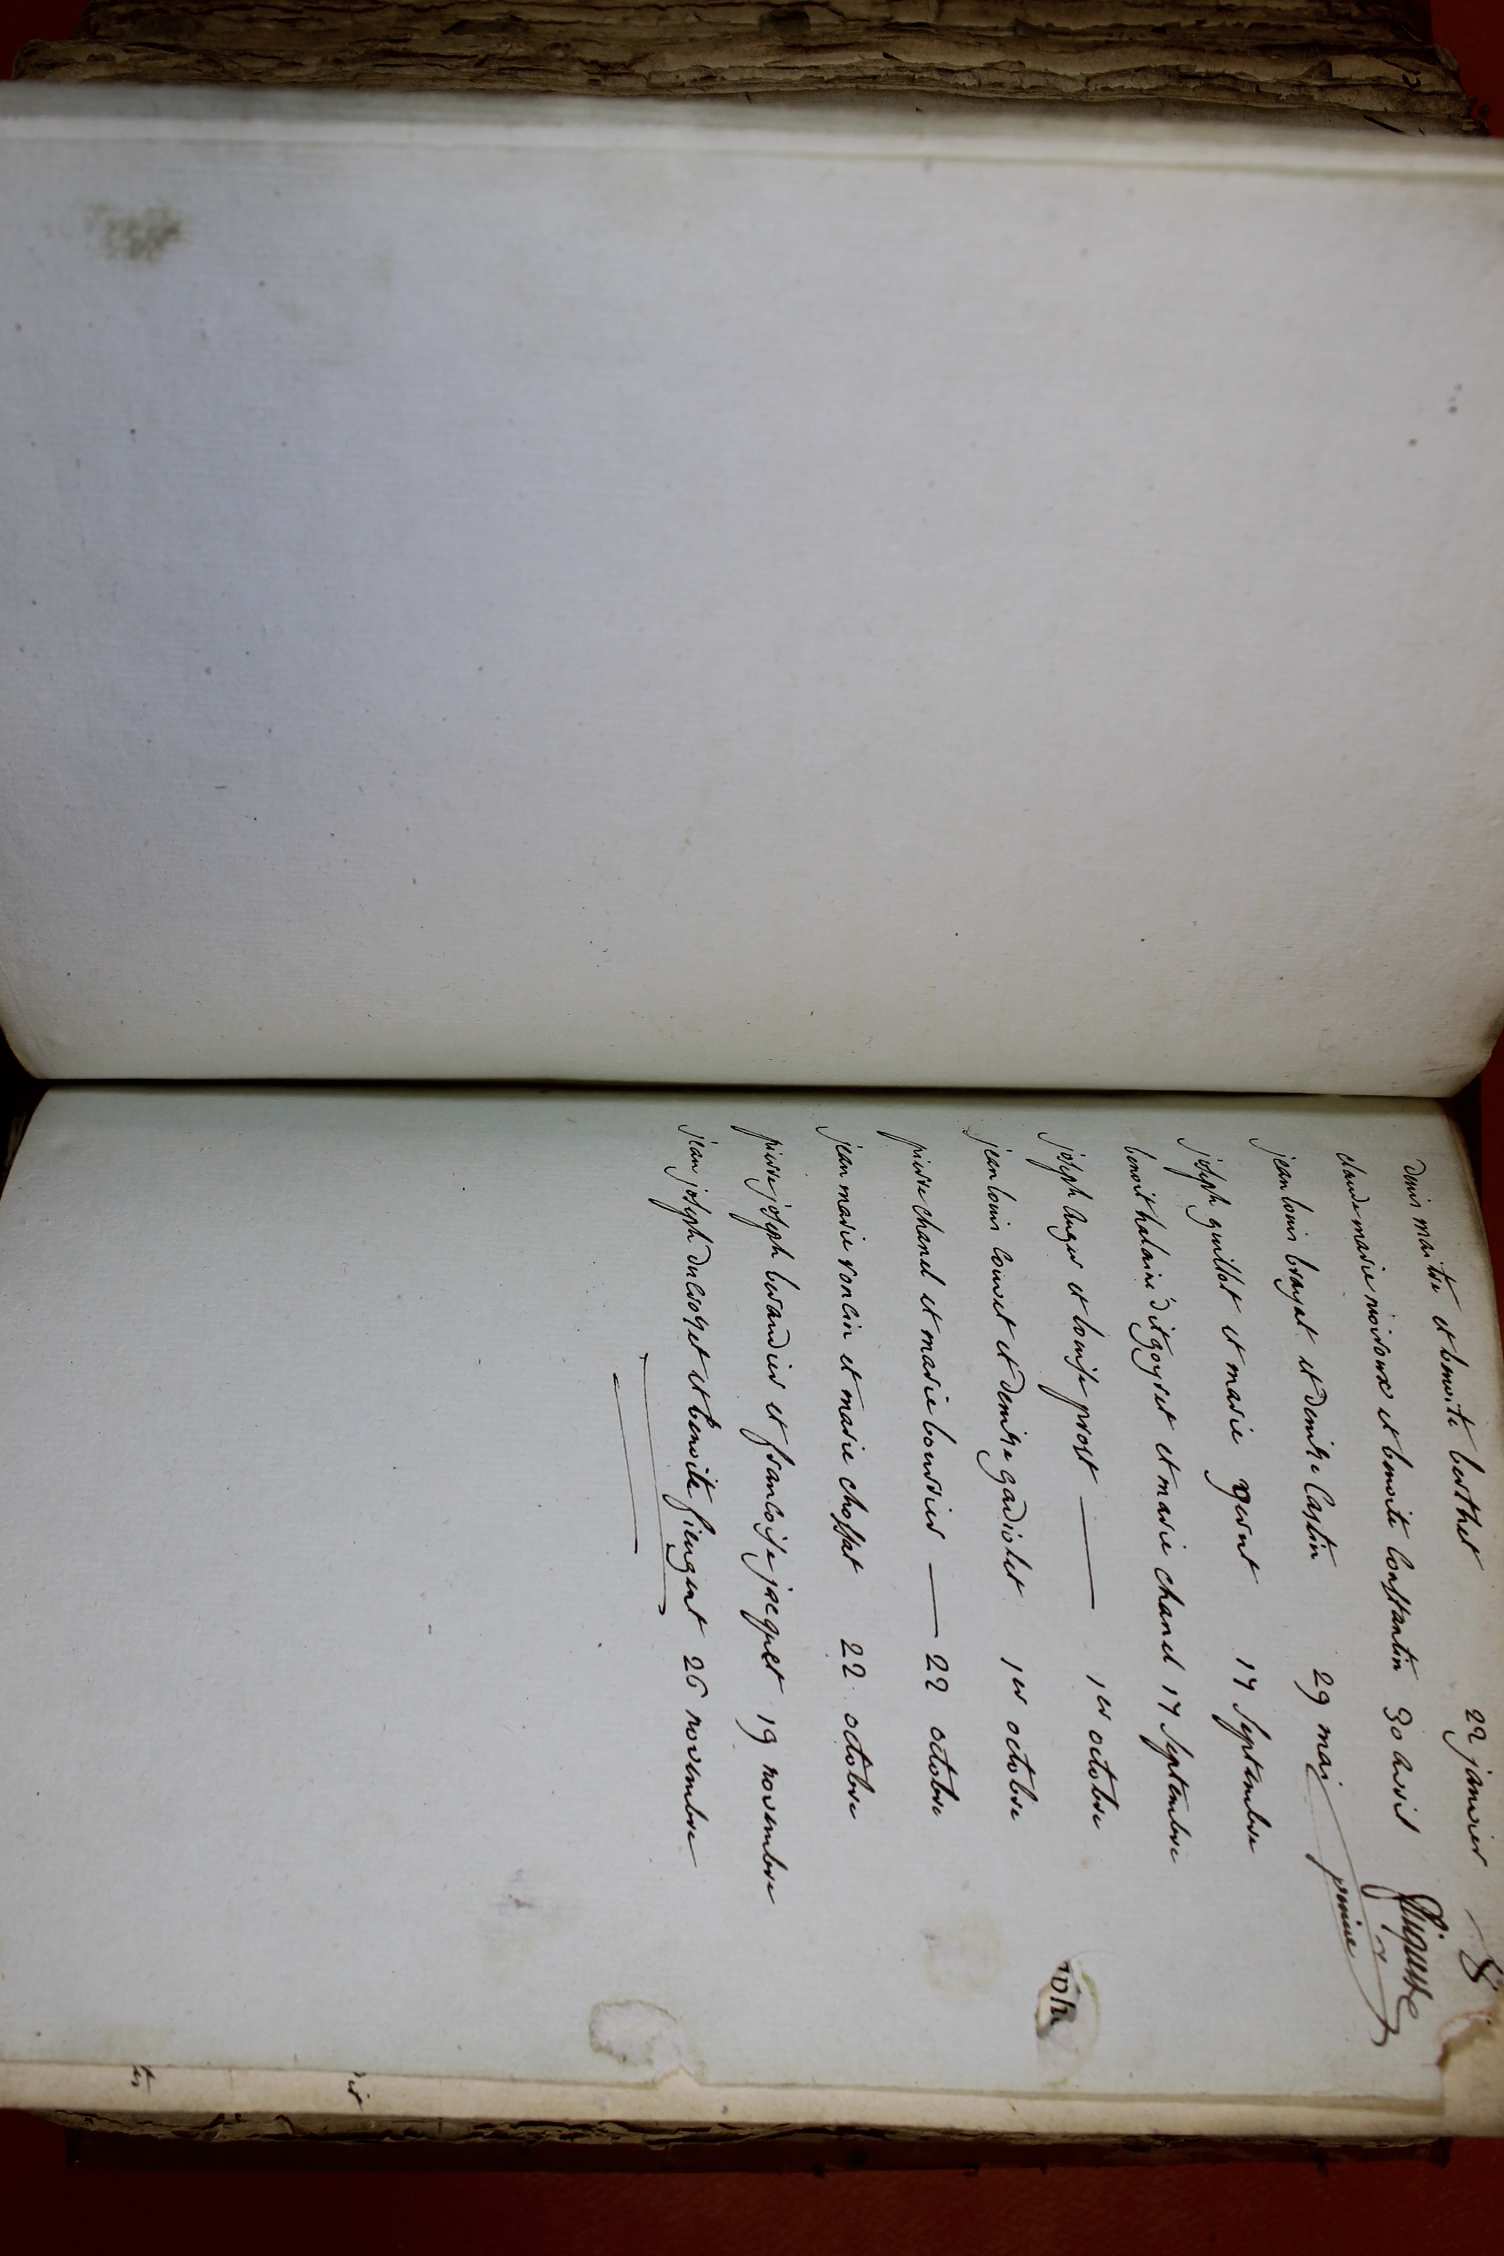 denis maitre et benoite berthet 22 janvier 8
claude marie noiroux et benoite constantin 30 avril
jean louis brayat et denise Castin 29 mai
joseph guillot et marie gerut 17 septembre
benoit halainé dit goyret et marie chanel 17 septembre
joseph auger et louise prost — 1er octobre
jean louis couret et denise gadiolet 1er octobre
pierre chanel et marie bourrier — 22 octobre
jean marie roncin et marie choffat 22 octobre
pierre joseph berandier et francoise jacquet 19 novembre
jean joseph ducroget et benoite piengent 26 novembre